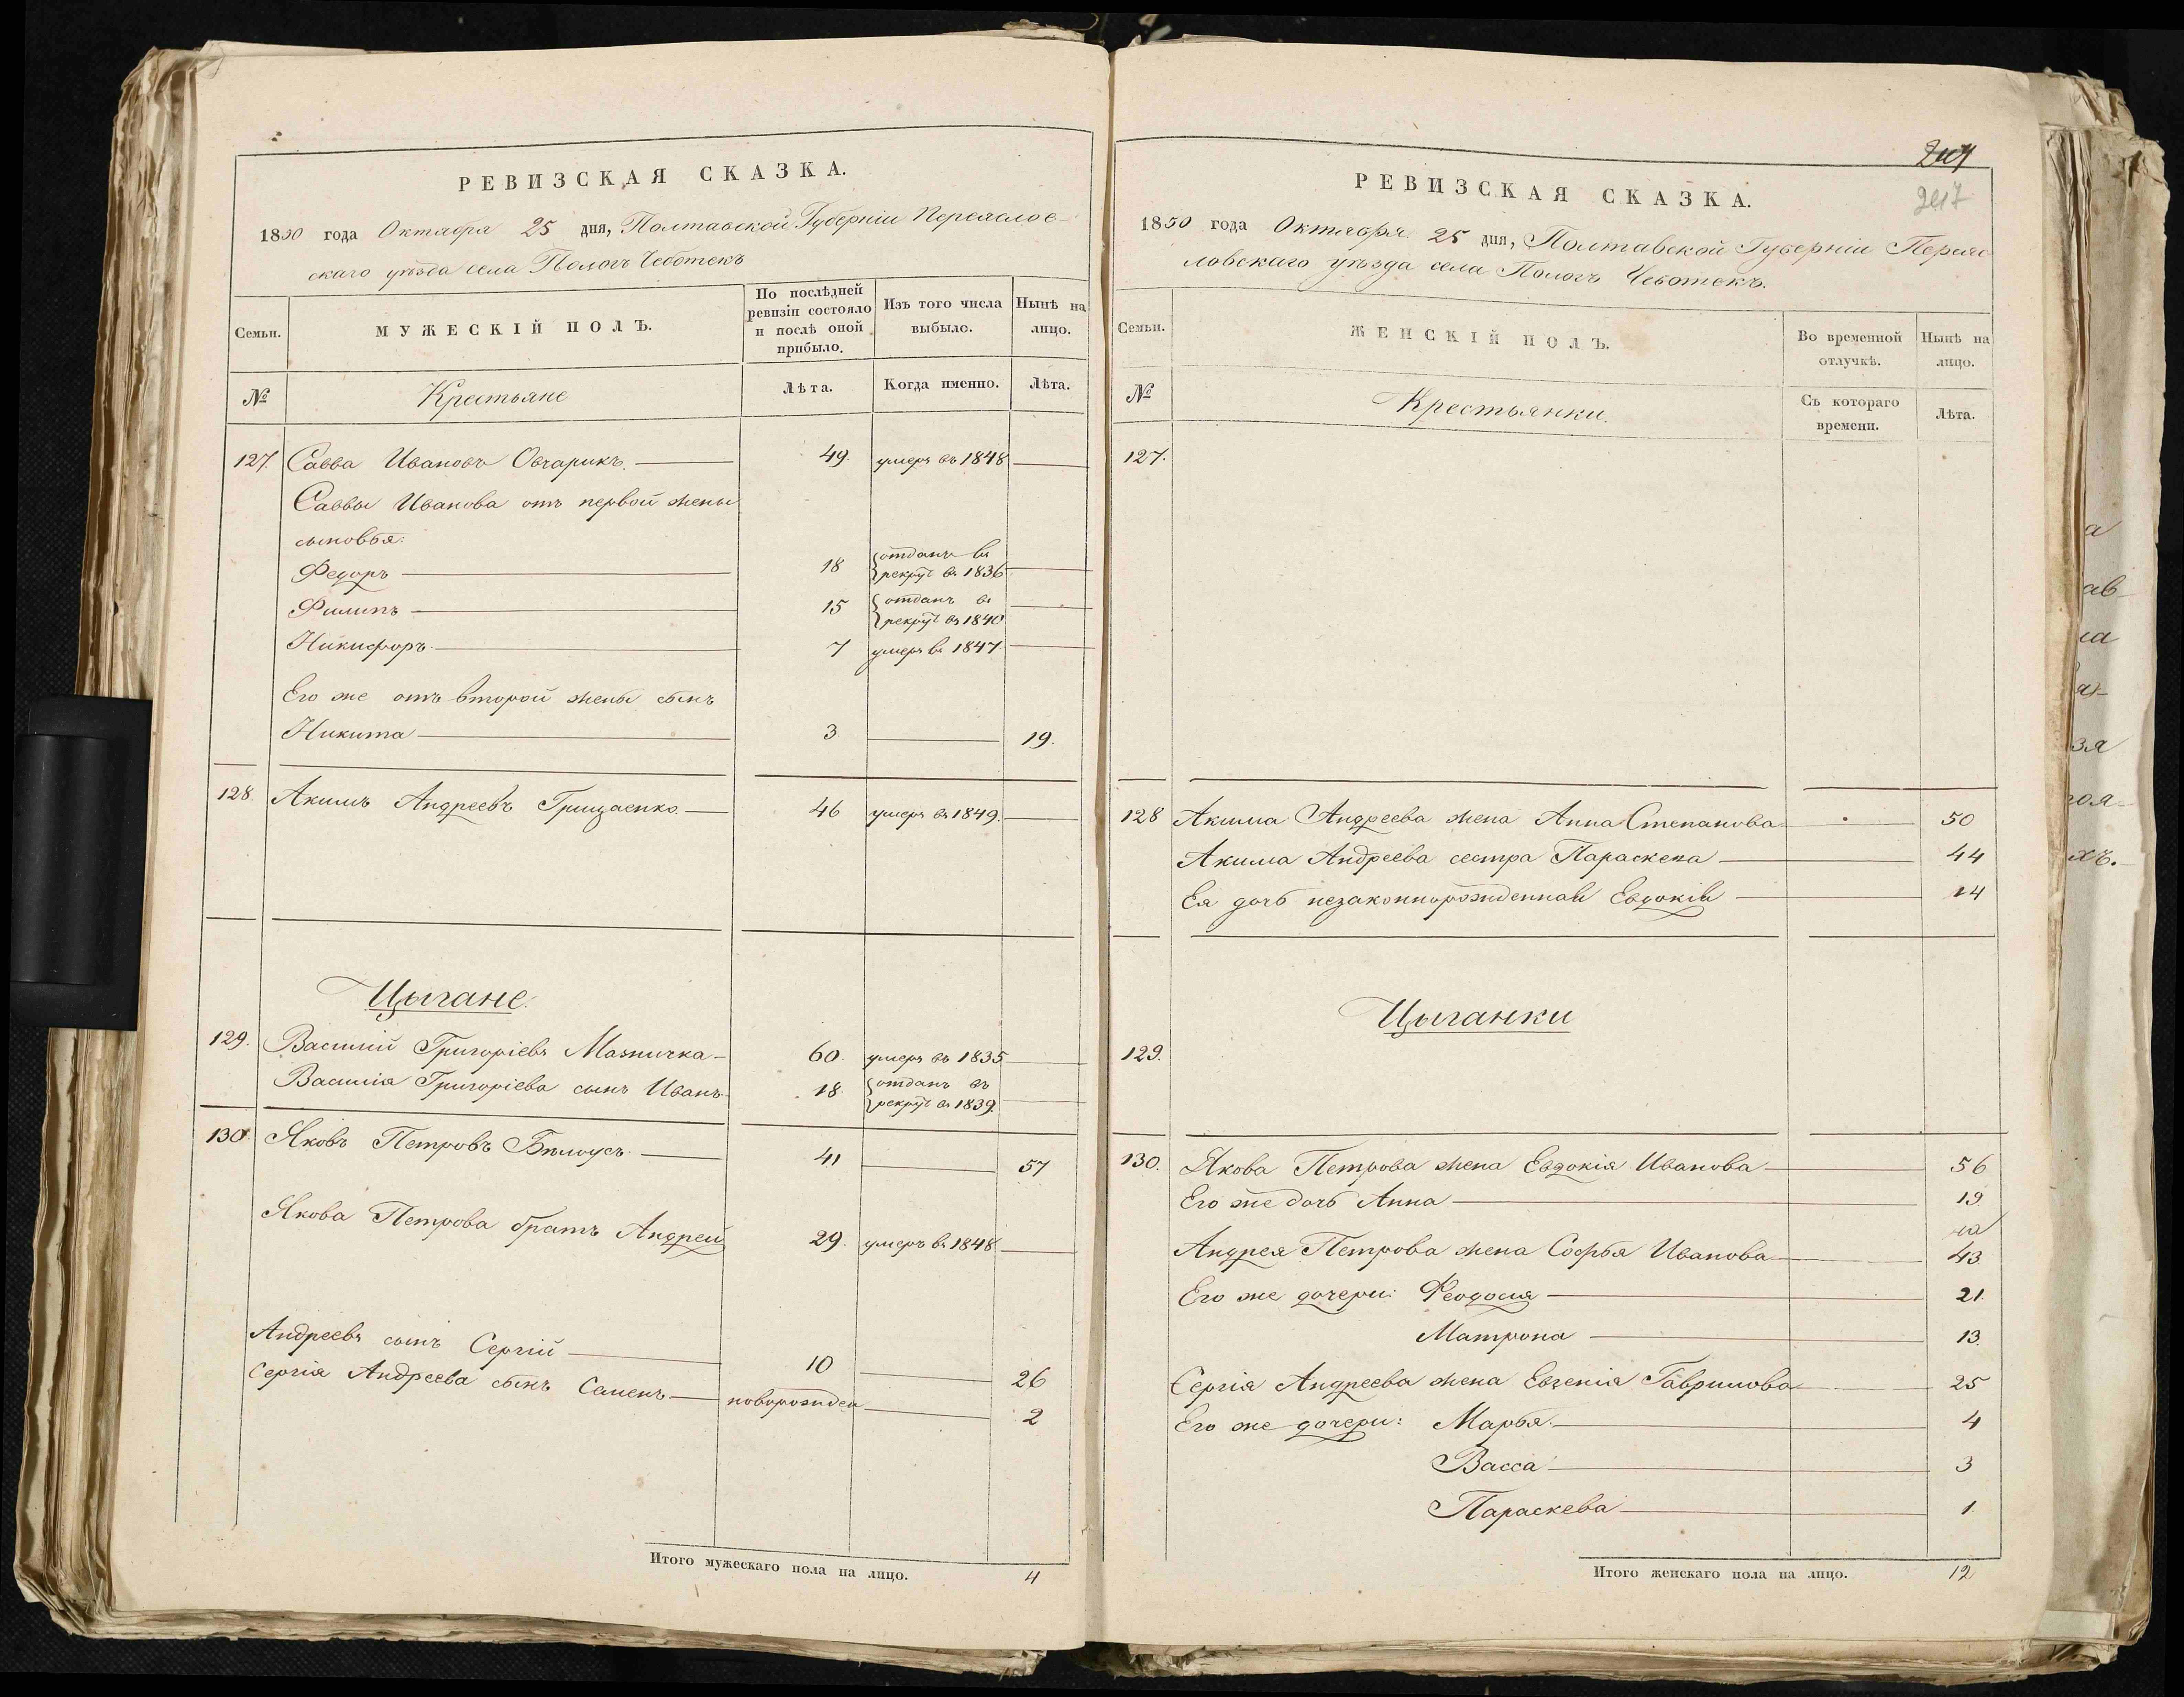 РЕВИЗСКАЯ СКАЗКА.
1850 года Октября 25 дня, Полтавской Губерніи Переясло
скаго уѣзда села Пологъ Чеботекъ
Семьи.
МУЖЕСКІЙ ПОЛЪ.
По послѣдней ревизіи состояло и послѣ оной прибыло.
Изъ того числа выбыло.
Нынѣ на лицо.
№
Крестьяне
Лѣта.
Когда именно.
Лѣта.
127. Савва Ивановъ Овчарикъ. 49. умеръ въ 1848
Саввы Иванова отъ первой жены
сыновья:
Федоръ 18 отданъ въ рекрут въ 1836
Филипъ 15 отданъ въ рекрут въ 1840
Никифоръ 7 умеръ въ 1847
Его же отъ второй жены сынъ
Никита 3. 19.
128. Акимъ Андреевъ Грицаенко. 46 умеръ въ 1849.
Цыгане.
129. Василій Григоріевъ Мазничка 60. умеръ въ 1835
Василія Григоріева сынъ Иванъ 18. отданъ въ рекрут въ 1839.
130 Яковъ Петровъ Бѣлоусъ. 41 57
Якова Петрова братъ Андрей 29. умеръ въ 1848
Андреевъ сынъ Сергій 10 26
Сергія Андреева сынъ Семенъ новорожден 2
Итого мужескаго пола на лицо. 4
217
РЕВИЗСКАЯ СКАЗКА.
1850 года Октября 25 дня, Полтавской Губерніи Переяс
ловскаго уѣзда села Пологъ Чеботекъ.
Семьи.
ЖЕНСКІЙ ПОЛЪ.
Во временной отлучкѣ.
Нынѣ на лицо.
№
Крестьянки.
Съ котораго времени.
Лѣта.
127.
128 Акима Андреева жена Анна Степанова 50
Акима Андреева сестра Параскева 44
Ея дочь незаконнорожденная Евдокія 14
Цыганки
129.
130. Якова Петрова жена Евдокія Иванова 56
Его же дочь Анна 19.
Андрея Петрова жена Софья Иванова 43.
Его же дочери: Феодосия 21.
Матрона 13.
Сергія Андреева жена Евгенія Гаврилова 25
Его же дочери: Марья. 4
Васса 3
Параскева 1
Итого женскаго пола на лицо. 12